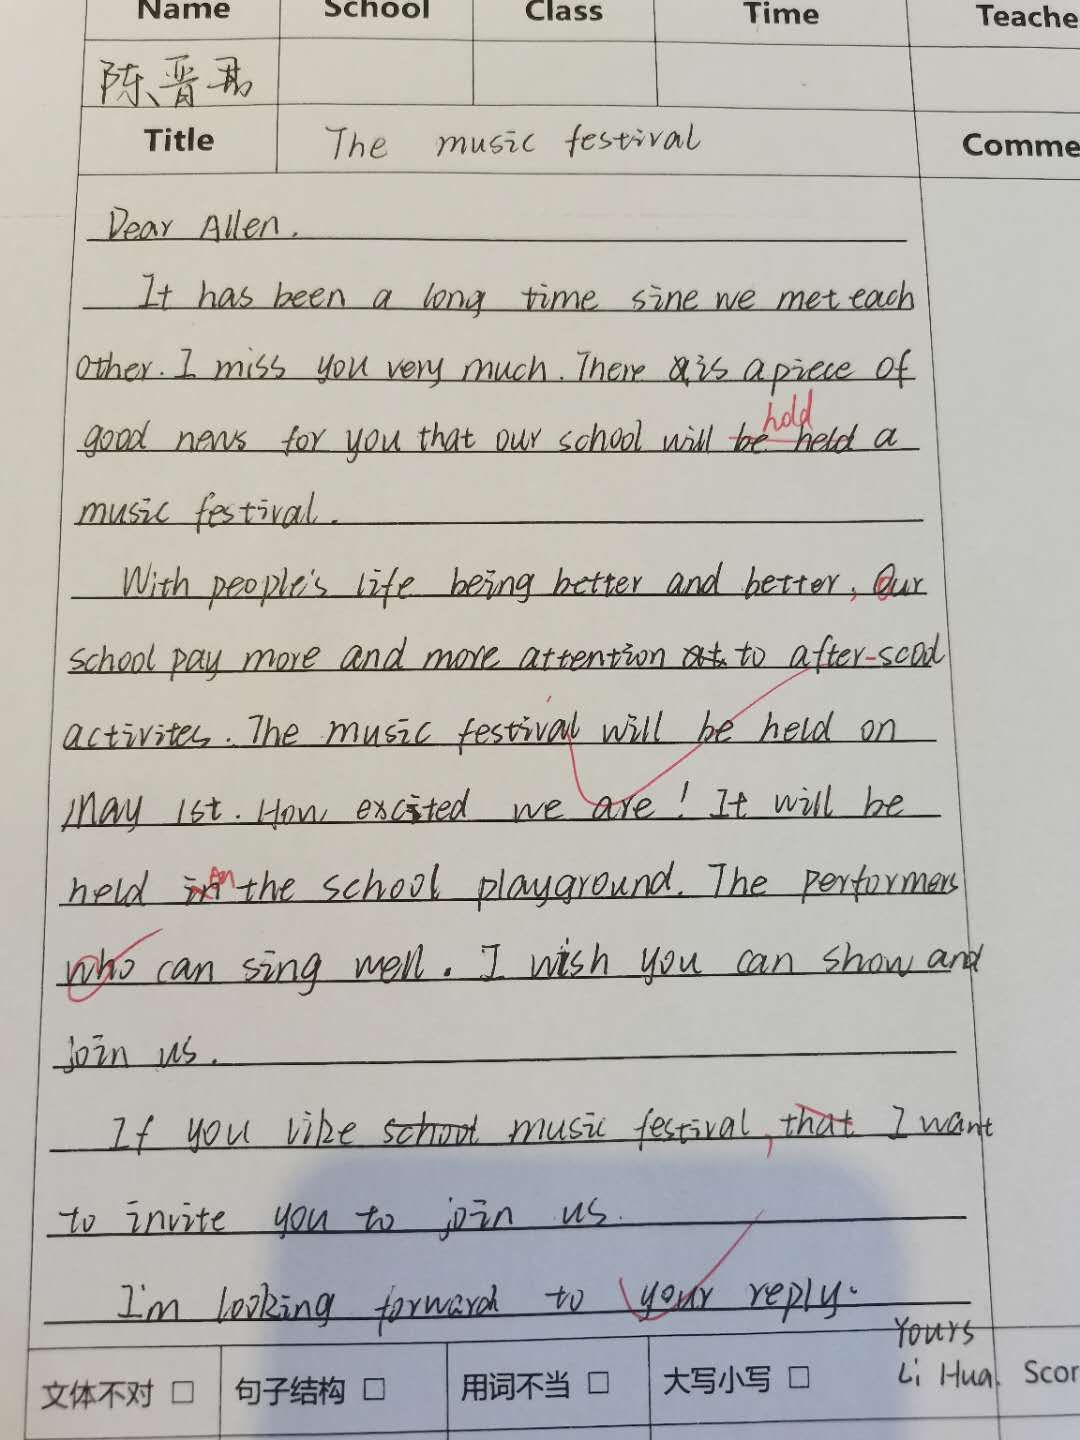 Name School Class Time Teache
陈晋君
Title The music festival Comme
Dear Allen.
It has been a long time sine we met each
other. I miss you very much. There is a piece of
hold
good news for you that our school will be held a
music festival.
With people's life being better and better, our
school pay more and more attention to after-scool
activites. The music festival will be held on
May 1st. How excited we are! It will be
held in the school playground. The performers
who can sing well. I wish you can show and
join us.
If you like school music festival, that I want
to invite you to join us.
I'm looking forward to your reply.
Yours
Li Hua.
文体不对 □ 句子结构 □ 用词不当 □ 大写小写 □ Scor